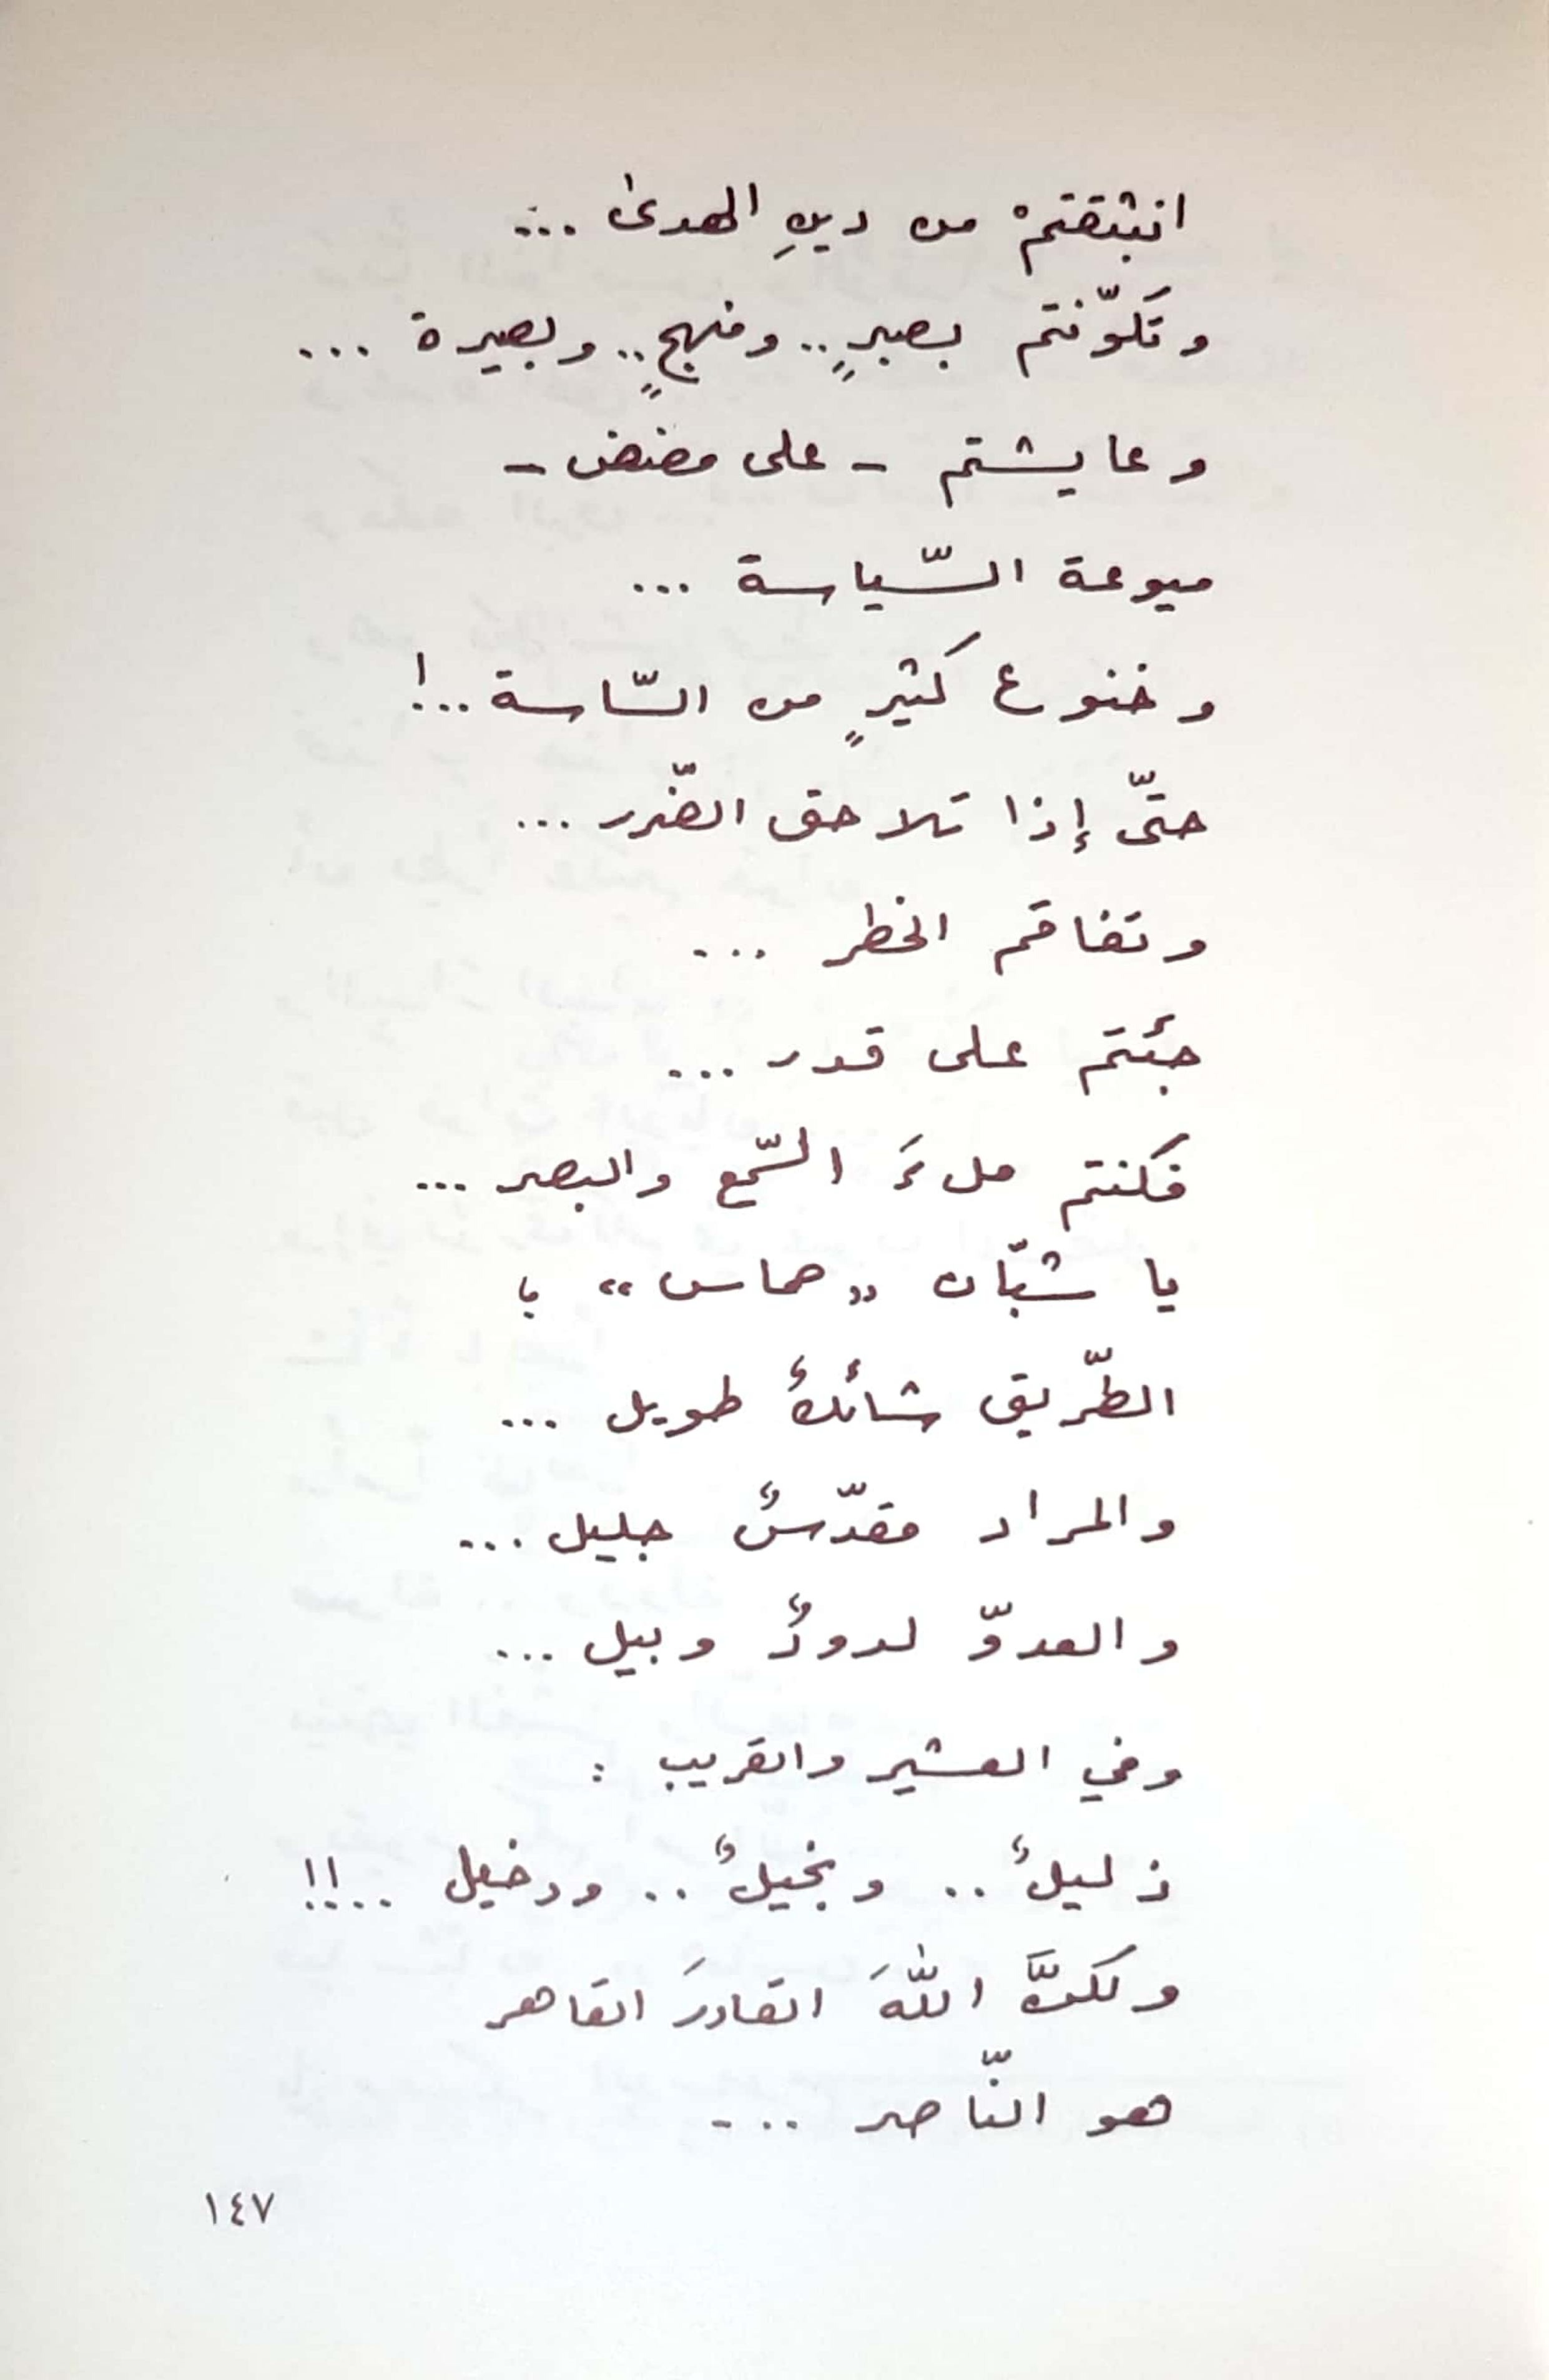 انبثقتمْ من دينِ الهدىٰ ...
وتكَوّنتم بصبرٍ .. ومنهجٍ .. وبصيرة ...
وعايشتم - على مضض -
ميوعة السّياسة ...
وخنوع كثيرٍ من السّاسة ..!
حتّى إذا تلاحق الضّرر ...
وتفاقم الخطر ...
جئتم على قدر ...
فكنتم ملءَ السّمع والبصر ...
يا شبّان «حماس» ؛
الطّريق شائكٌ طويل ...
والمراد مقدّسٌ جليل ...
والعدوّ لدودٌ وبيل ...
وفي العشير والقريب :
ذليلٌ .. وبخيلٌ .. ودخيل ..!!
ولكنَّ اللّٰهَ القادرَ القاهر
هو النّاصر ...
١٤٧